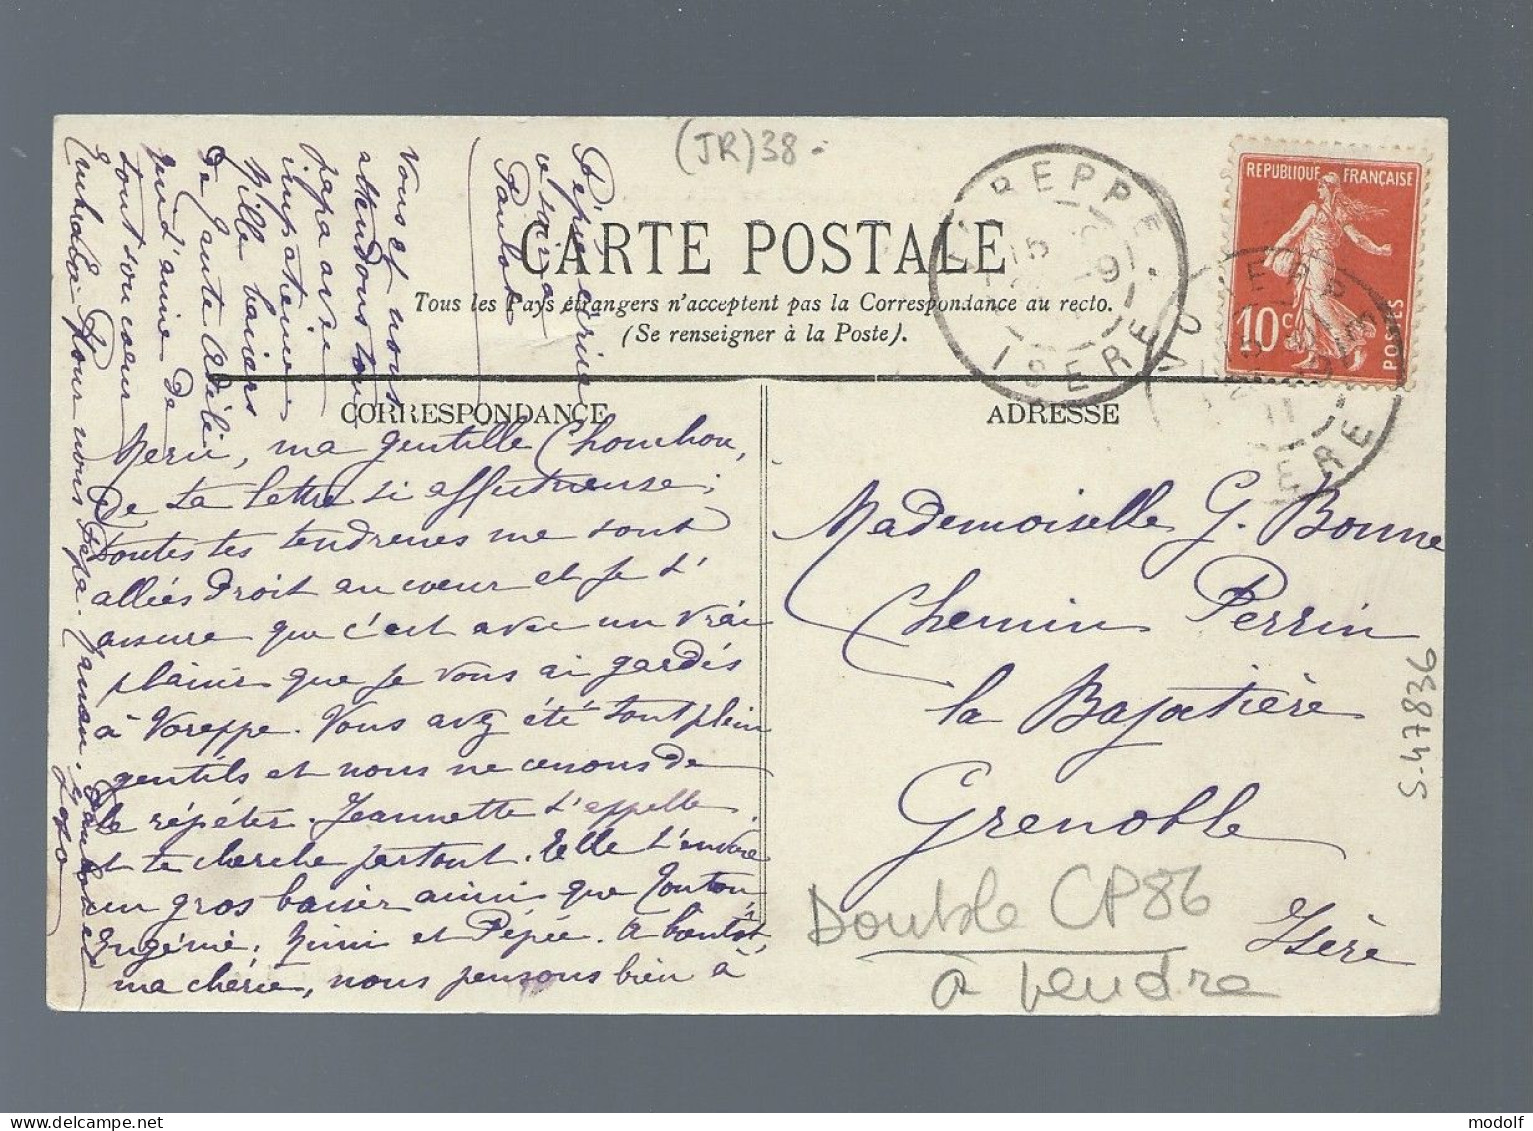 (JR) 38 -
CARTE POSTALE
Tous les Pays étrangers n'acceptent pas la Correspondance au recto.
(Se renseigner à la Poste).
CORRESPONDANCE
ADRESSE
VOREPPE
15
ISERE
REPUBLIQUE FRANÇAISE
10c
POSTES
VOREPPE
ISERE
Merci, ma gentille Chouchou,
de ta lettre si affectueuse ;
toutes tes tendresses me sont
allées droit au cœur et je t'
assure que c'est avec un vrai
plaisir que je vous ai gardés
à Voreppe. Vous avez été tout plein
gentils et nous ne cessons de
le répéter. Jeannette t'appelle
et te cherche partout. Elle t'envoie
un gros baiser ainsi que Tonton
Eugénie, Mimi et Pépée. A bientôt,
ma chérie, nous pensons bien à
vous et nous
attendons ton
papa avec
impatience
Mille baisers
de Tante Adèle
qui t'aime de
tout son cœur
Embrasse pour nous Papa, Maman,
Paulo
Mademoiselle G. Bonne
Chemin Perrin
la Bajatière
Grenoble
Isère
Double CP86
à vendre
S-47836
modolf